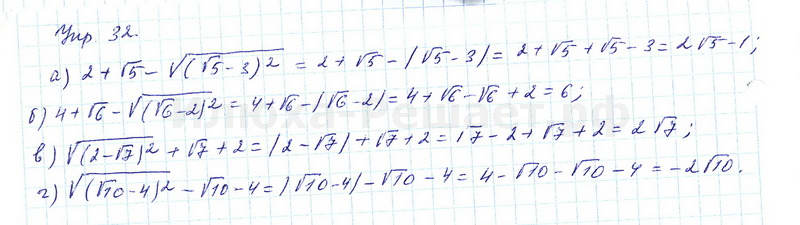 Упр 32.
а) 2+√5 − √(√5−3)² = 2+√5 − |√5−3| = 2+√5+√5−3 = 2√5−1;
б) 4+√6 − √(√6−2)² = 4+√6 − |√6−2| = 4+√6−√6+2 = 6;
в) √(2−√7)² + √7+2 = |2−√7| + √7+2 = √7−2+√7+2 = 2√7;
г) √(√10−4)² − √10−4 = |√10−4| − √10−4 = 4−√10−√10−4 = −2√10.